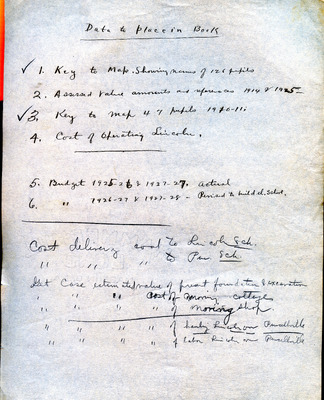 Data to place in Book
✓ 1. Key to Map. Showing names of 126 pupils
2. Assessed Value amounts and references 1914 & 1925
✓ 3. Key to map 47 pupils 1910-11.
4. Cost of Operating Lincoln.
5. Budget 1925-26 & 1927-27. Actual
6. " 1926-27 & 1927-28 - Period to build cl. School.
Cost delivery coal to Lincoln Sch.
" " " to Pur. Sch
Get Case estimated value of present foundation & excavation
" " " Cost of moving cottage
" " " " of moving shop
" " " " of Lincoln or Purcellville
" " " " of labor Lincoln or Purcellville